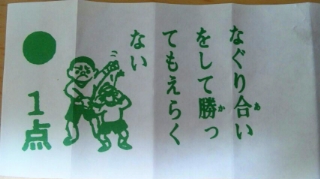 なぐり合い
をして勝っ
てもえらく
ない
あ
か
1点